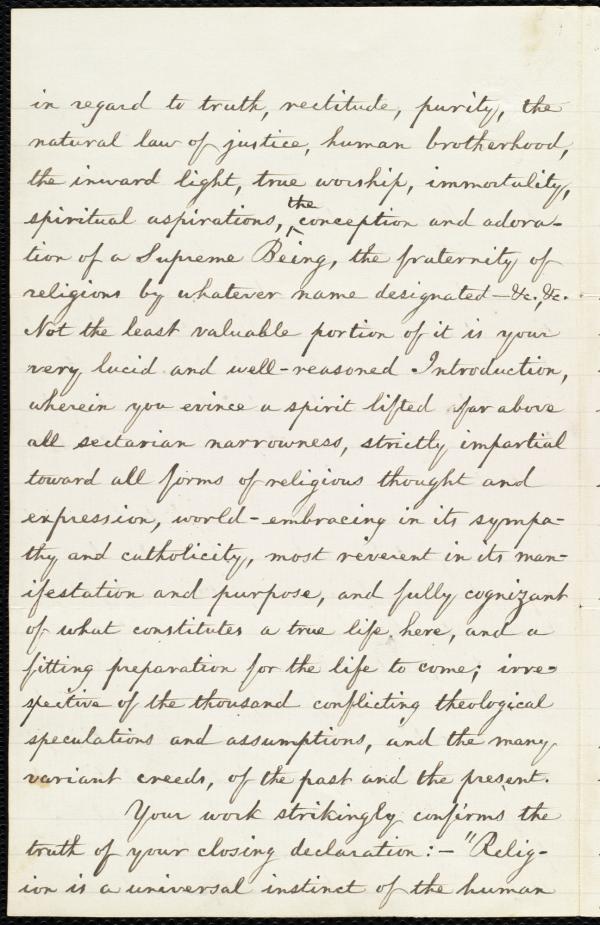 in regard to truth, rectitude, purity, the
natural law of justice, human brotherhood,
the inward light, true worship, immortality,
spiritual aspirations, the conception and adora-
tion of a Supreme Being, the fraternity of
religions by whatever name designated—&c., &c.
Not the least valuable portion of it is your
very lucid and well-reasoned Introduction,
wherein you evince a spirit lifted far above
all sectarian narrowness, strictly impartial
toward all forms of religious thought and
expression, world-embracing in its sympa-
thy and catholicity, most reverent in its man-
ifestation and purpose, and fully cognizant
of what constitutes a true life here, and a
fitting preparation for the life to come; irre-
spective of the thousand conflicting theological
speculations and assumptions, and the many
variant creeds, of the past and the present.
Your work strikingly confirms the
truth of your closing declaration:—"Relig-
ion is a universal instinct of the human